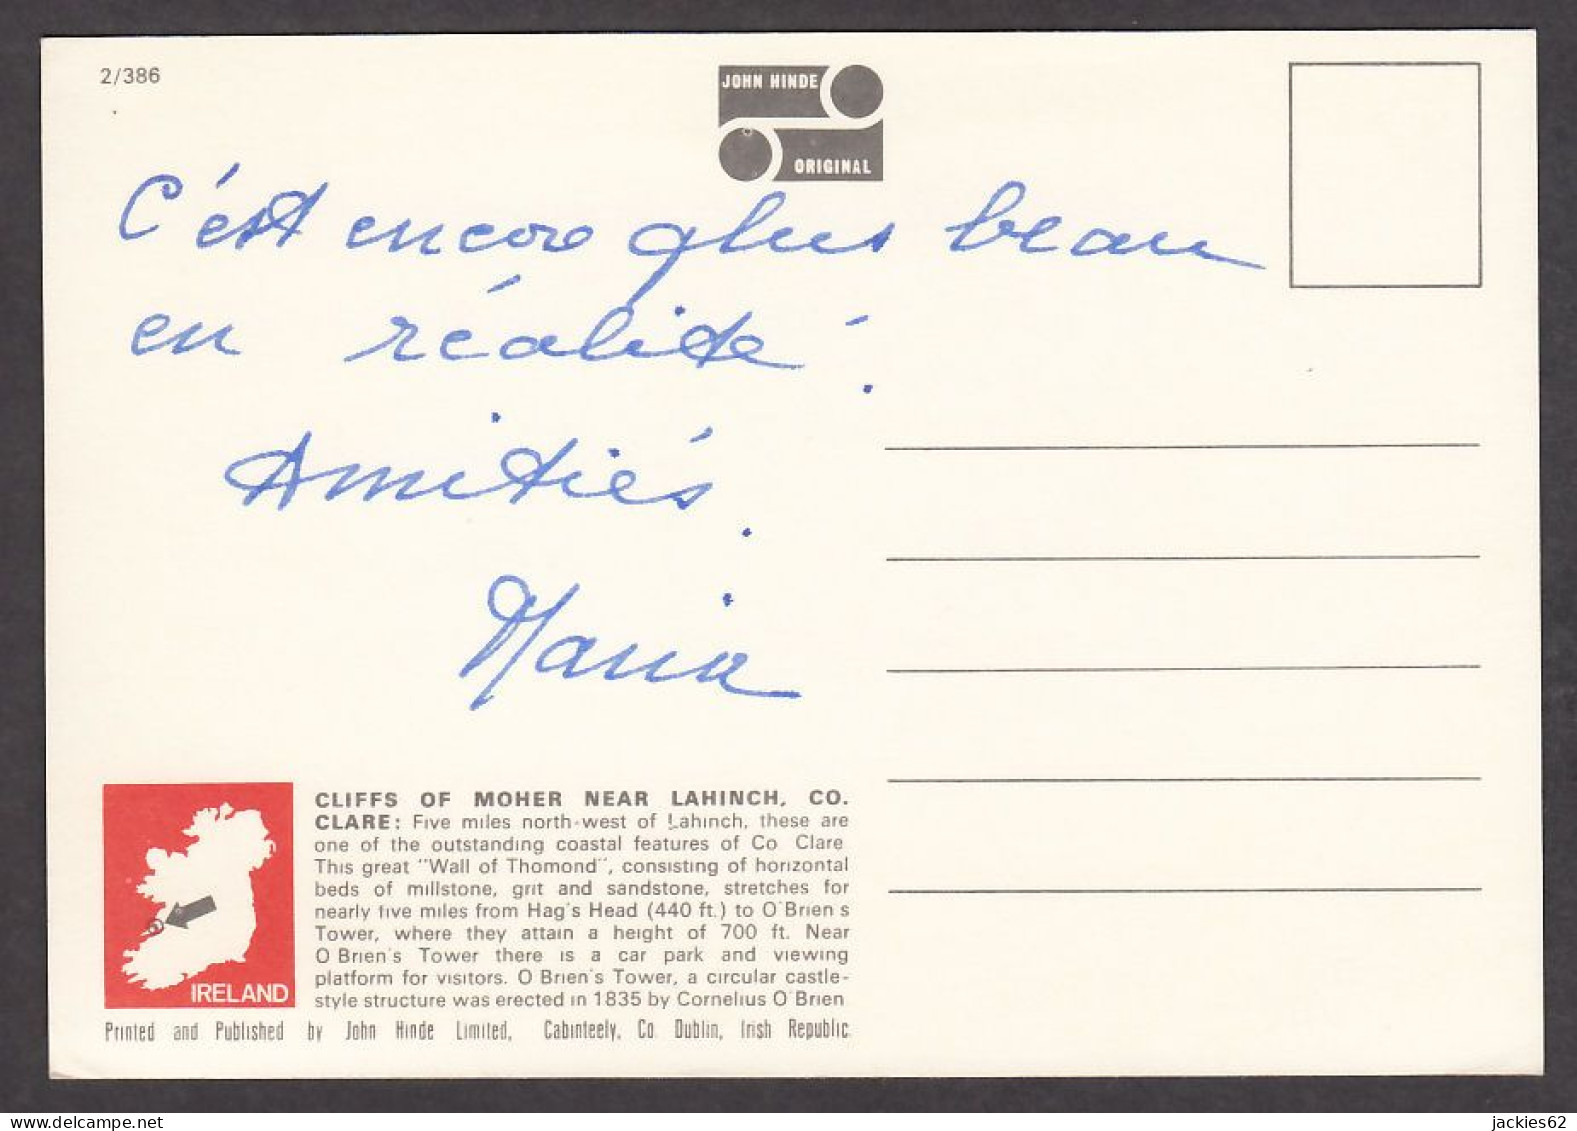 2/386
JOHN HINDE
ORIGINAL
C'est encore plus beau
en réalité !
Amitiés.
Maria
CLIFFS OF MOHER NEAR LAHINCH, CO.
CLARE: Five miles north-west of Lahinch, these are
one of the outstanding coastal features of Co Clare
This great "Wall of Thomond", consisting of horizontal
beds of millstone, grit and sandstone, stretches for
nearly five miles from Hag's Head (440 ft.) to O'Brien s
Tower, where they attain a height of 700 ft. Near
O Brien's Tower there is a car park and viewing
platform for visitors. O Brien's Tower, a circular castle-
style structure was erected in 1835 by Cornelius O'Brien
IRELAND
Printed and Published by John Hinde Limited, Cabinteely, Co. Dublin, Irish Republic
jackies62